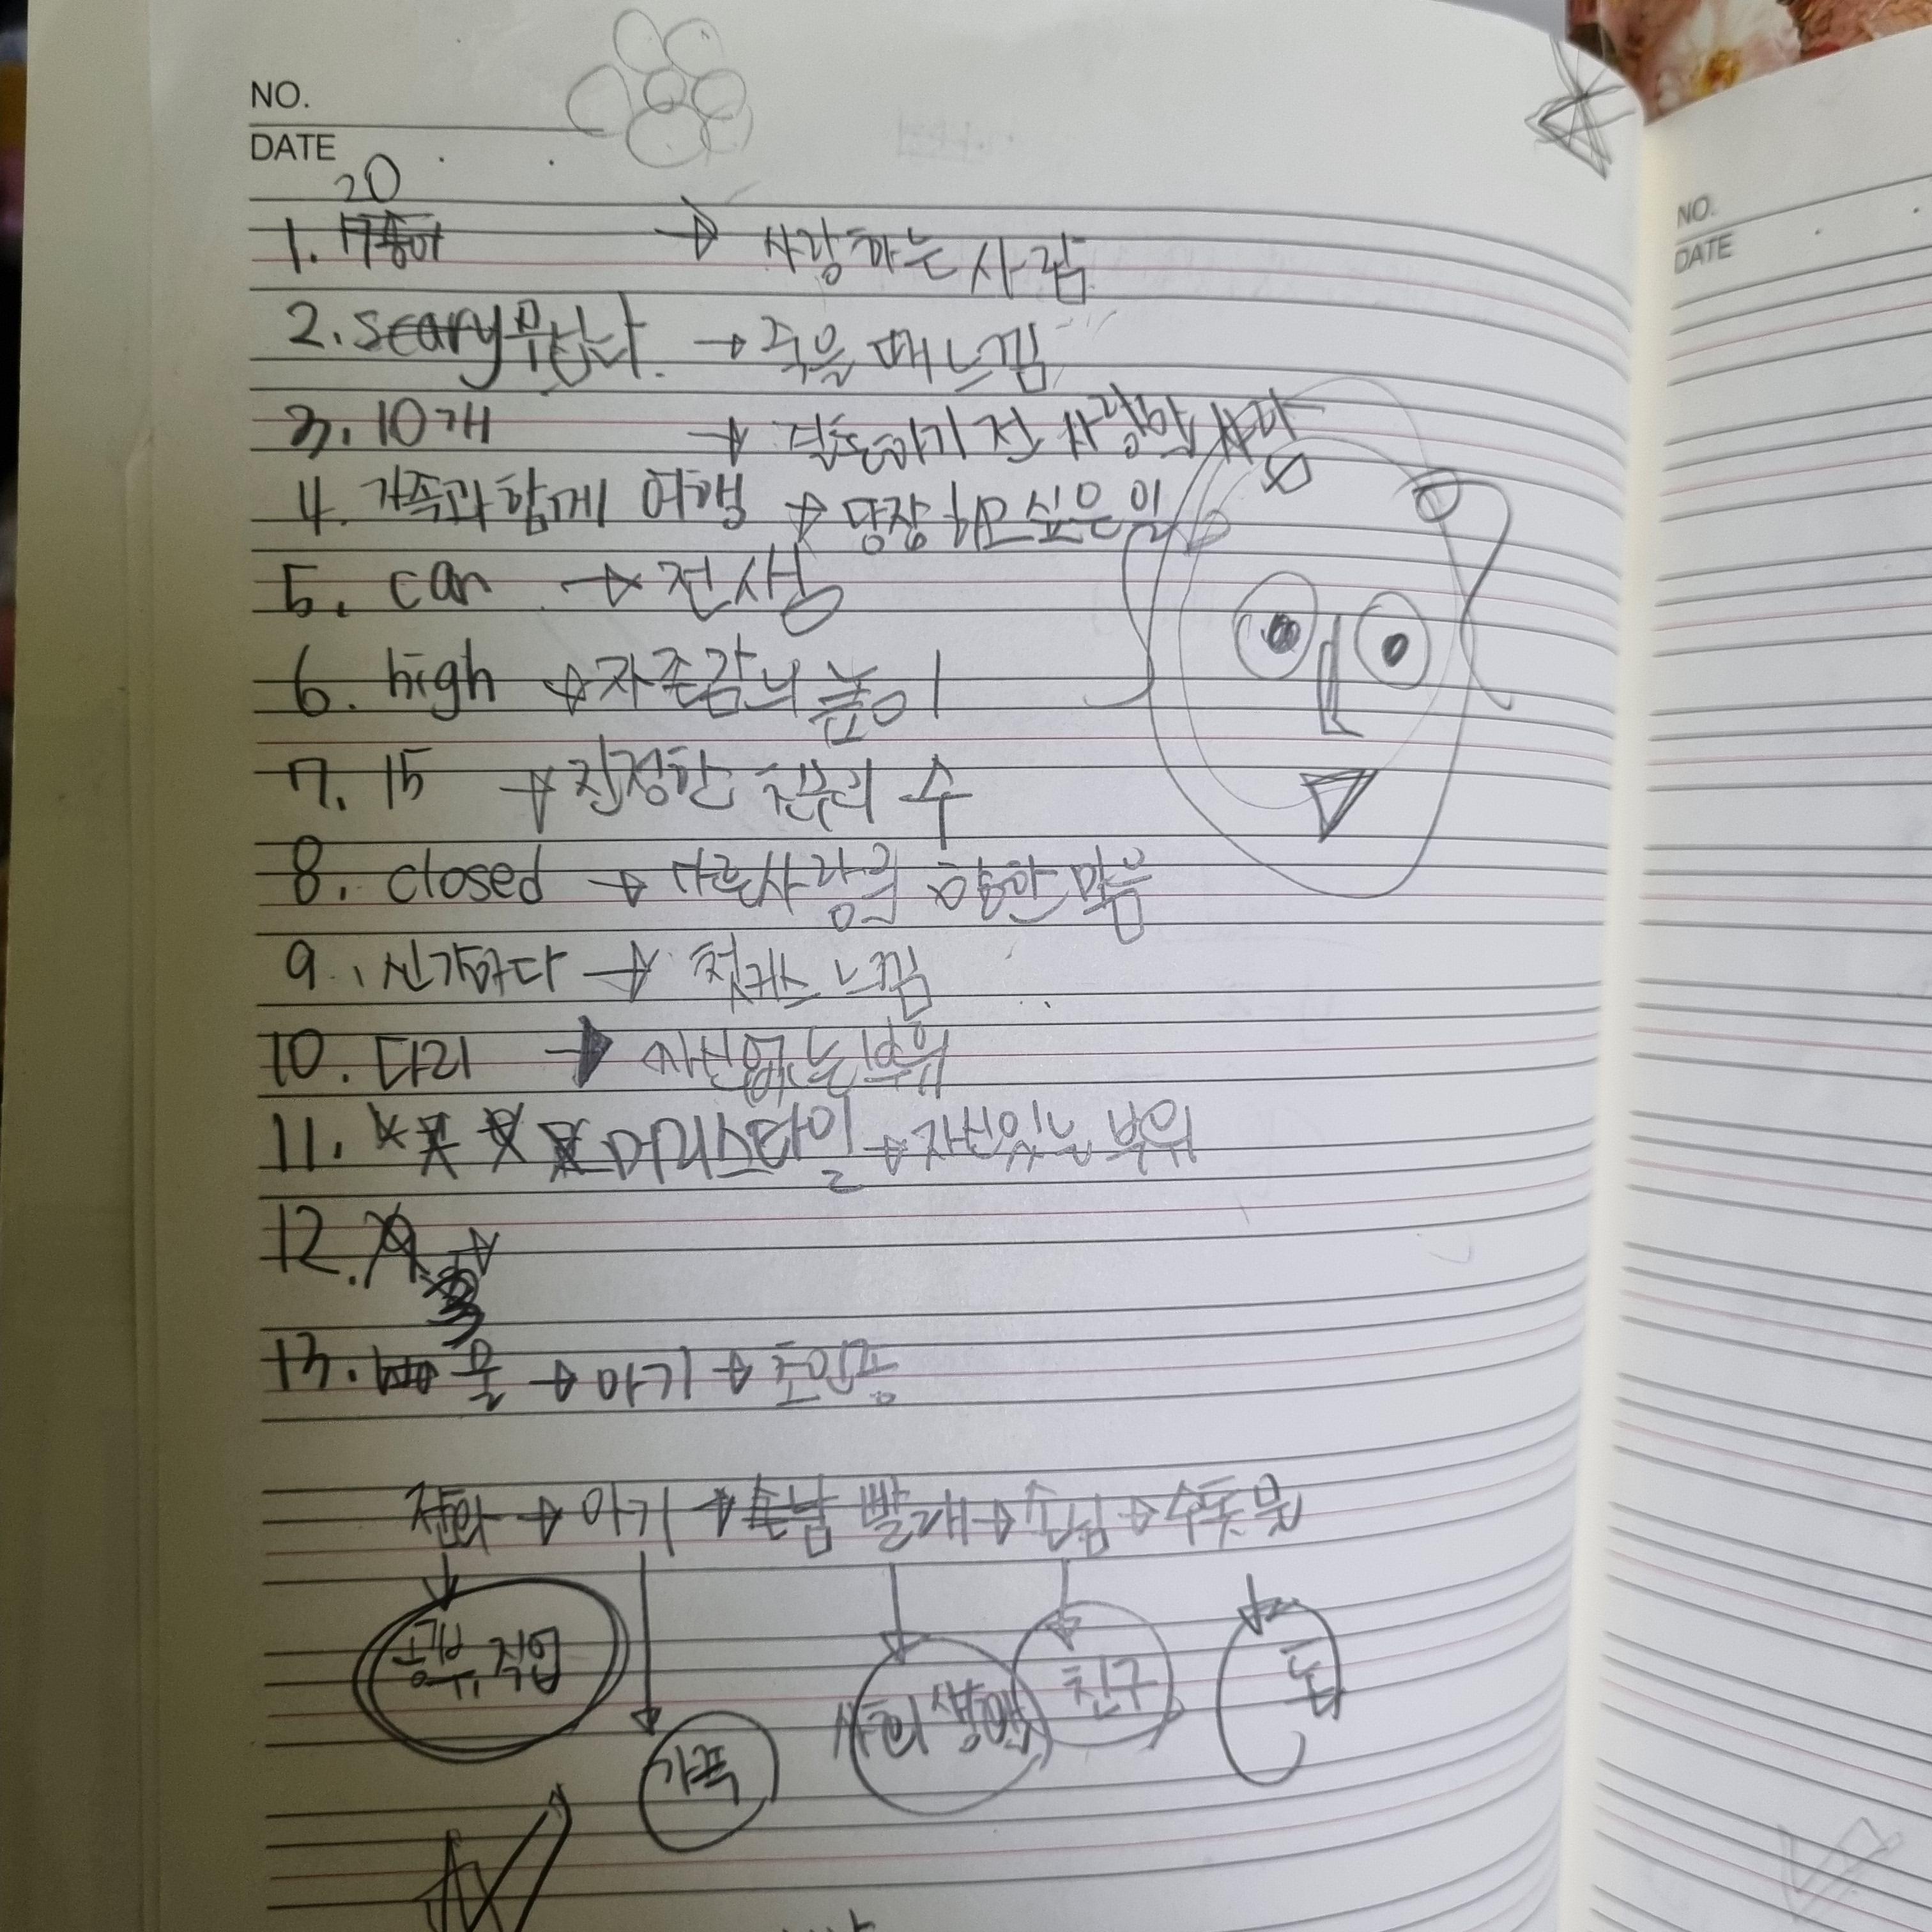 NO.
DATE
20
1. → 사랑하는 사람
2. scary 무섭다. → 죽을 때 느낌
3. 10개 → 결혼하기 전 사랑할
4. 가족과 함께 여행 → 당장 하고 싶은 일
5. can → 전사성
6. high → 자존감의 높이
7. 15 → 진정한 친구의 수
8. closed → 다른사람을 향한 마음
9. 신기하다 → 첫키스 느낌
10. 다리 → 자신없는 부위
11. 머리스타일 → 자신있는 부위
12.
13. 물 → 아기 → 초인종
전화 → 아기 → 손님 빨래 → 손님 → 수돗물
공부, 직업
가족
사회생활
친구
돈
NO.
DATE